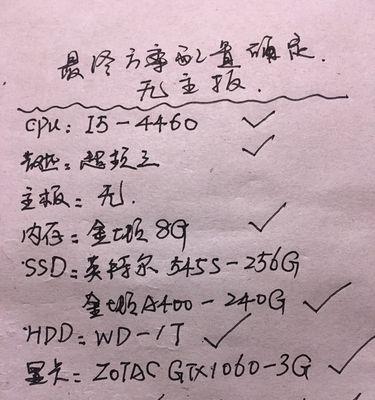 最终方案配置确定.
无主板.
CPU: I5-4460
散热: 超频三
主板: 无.
内存: 金士顿 8G
SSD: 英特尔 545S-256G
金士顿A400-240G
HDD: WD-1T
显卡: ZOTAC GTX1060-3G